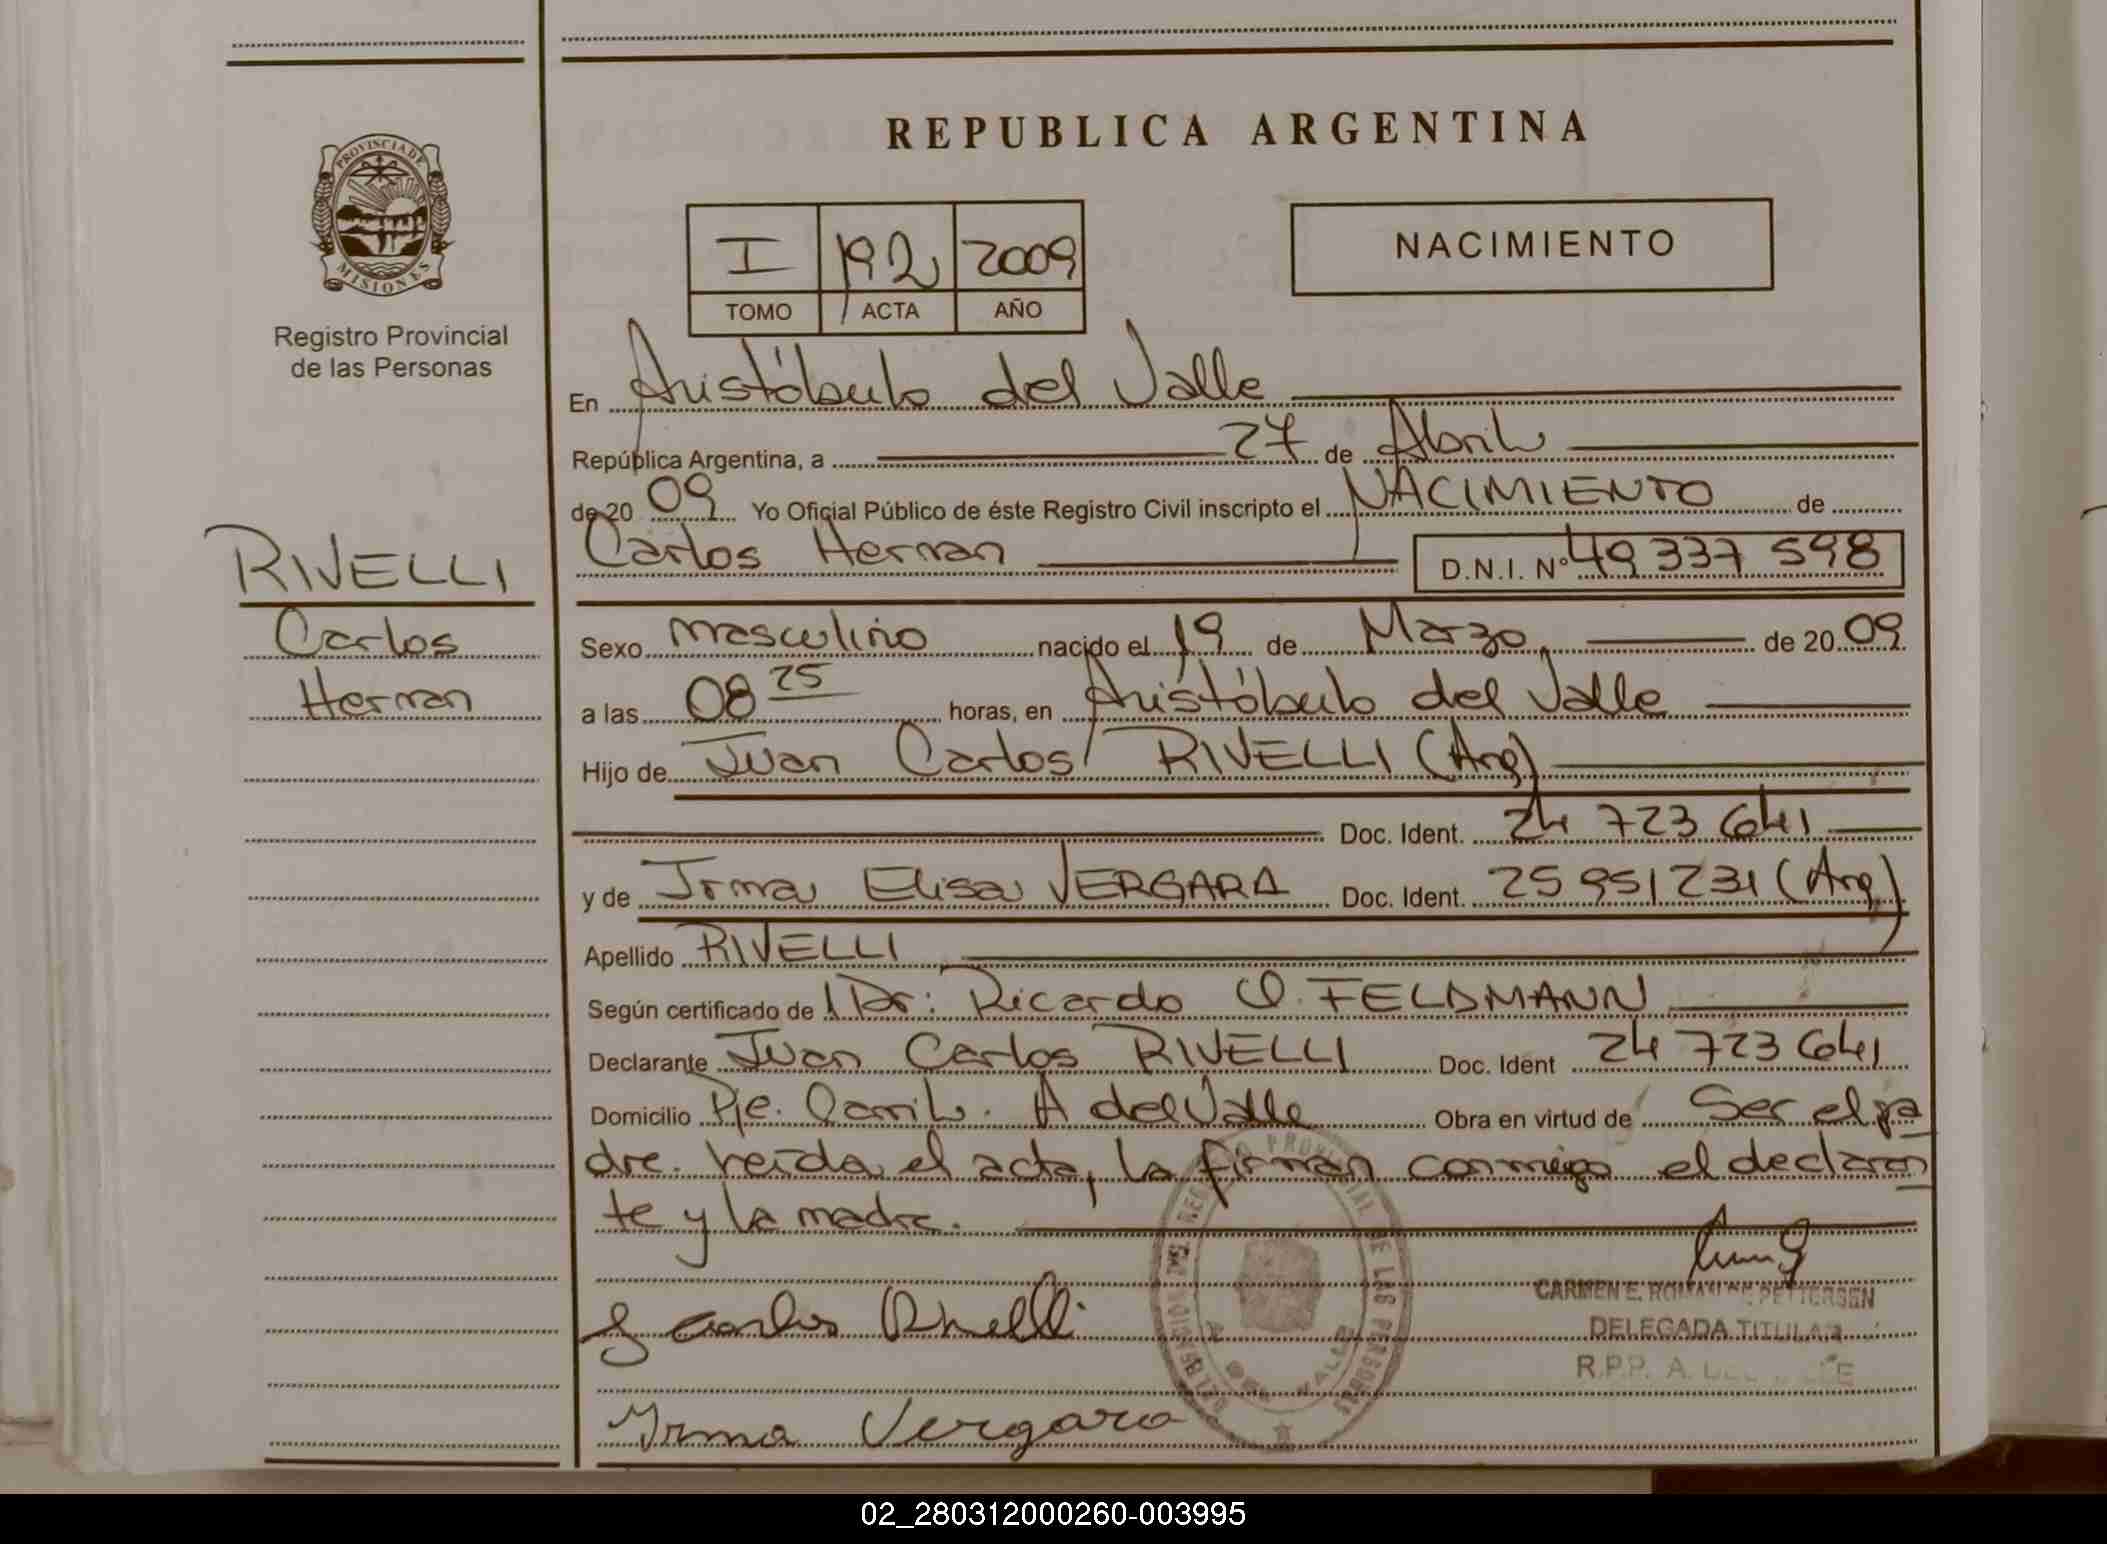 REPUBLICA ARGENTINA
PROVINCIA DE
MISIONES
Registro Provincial
de las Personas
I 192 2009
TOMO ACTA AÑO
NACIMIENTO
En Aristóbulo del Valle
República Argentina, a 27 de Abril
de 20 09 Yo Oficial Público de éste Registro Civil inscripto el NACIMIENTO de
Carlos Hernan D.N.I. Nº 49 337 598
RIVELLI
Carlos
Hernan
Sexo masculino nacido el 19 de Marzo de 20 09
a las 08 25 horas, en Aristóbulo del Valle
Hijo de Juan Carlos RIVELLI (Arg)
Doc. Ident. 24 723 641
y de Irma Elisa VERGARA Doc. Ident. 25 951 231 (Arg)
Apellido RIVELLI
Según certificado de Dr: Ricardo O. FELDMANN
Declarante Juan Carlos RIVELLI Doc. Ident 24 723 641
Domicilio Pje. A del Valle Obra en virtud de Ser el pa
dre. Leida el acta, la firman conmigo el declaran
te y la madre.
J Carlos Rivelli
Irma Vergara
REGISTRO PROVINCIAL DE LAS PERSONAS
A DEL VALLE
CARMEN E. ROMAN DE PETTERSEN
DELEGADA TITULAR
R.P.P. A. DEL VALLE
02_280312000260-003995